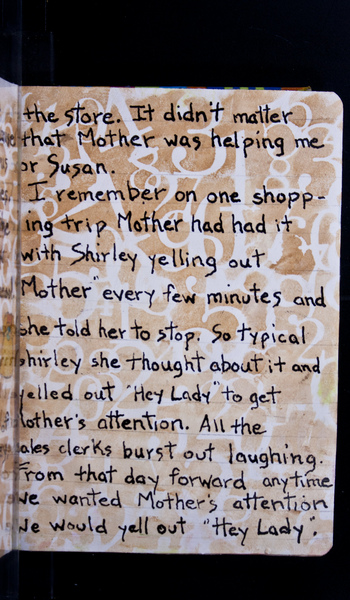 the store. It didn't matter
that Mother was helping me
or Susan.
I remember on one shopp-
ing trip Mother had had it
with Shirley yelling out
Mother" every few minutes and
she told her to stop. So typical
Shirley she thought about it and
yelled out "Hey Lady" to get
Mother's attention. All the
sales clerks burst out laughing.
From that day forward anytime
we wanted Mother's attention
We would yell out "Hey Lady".